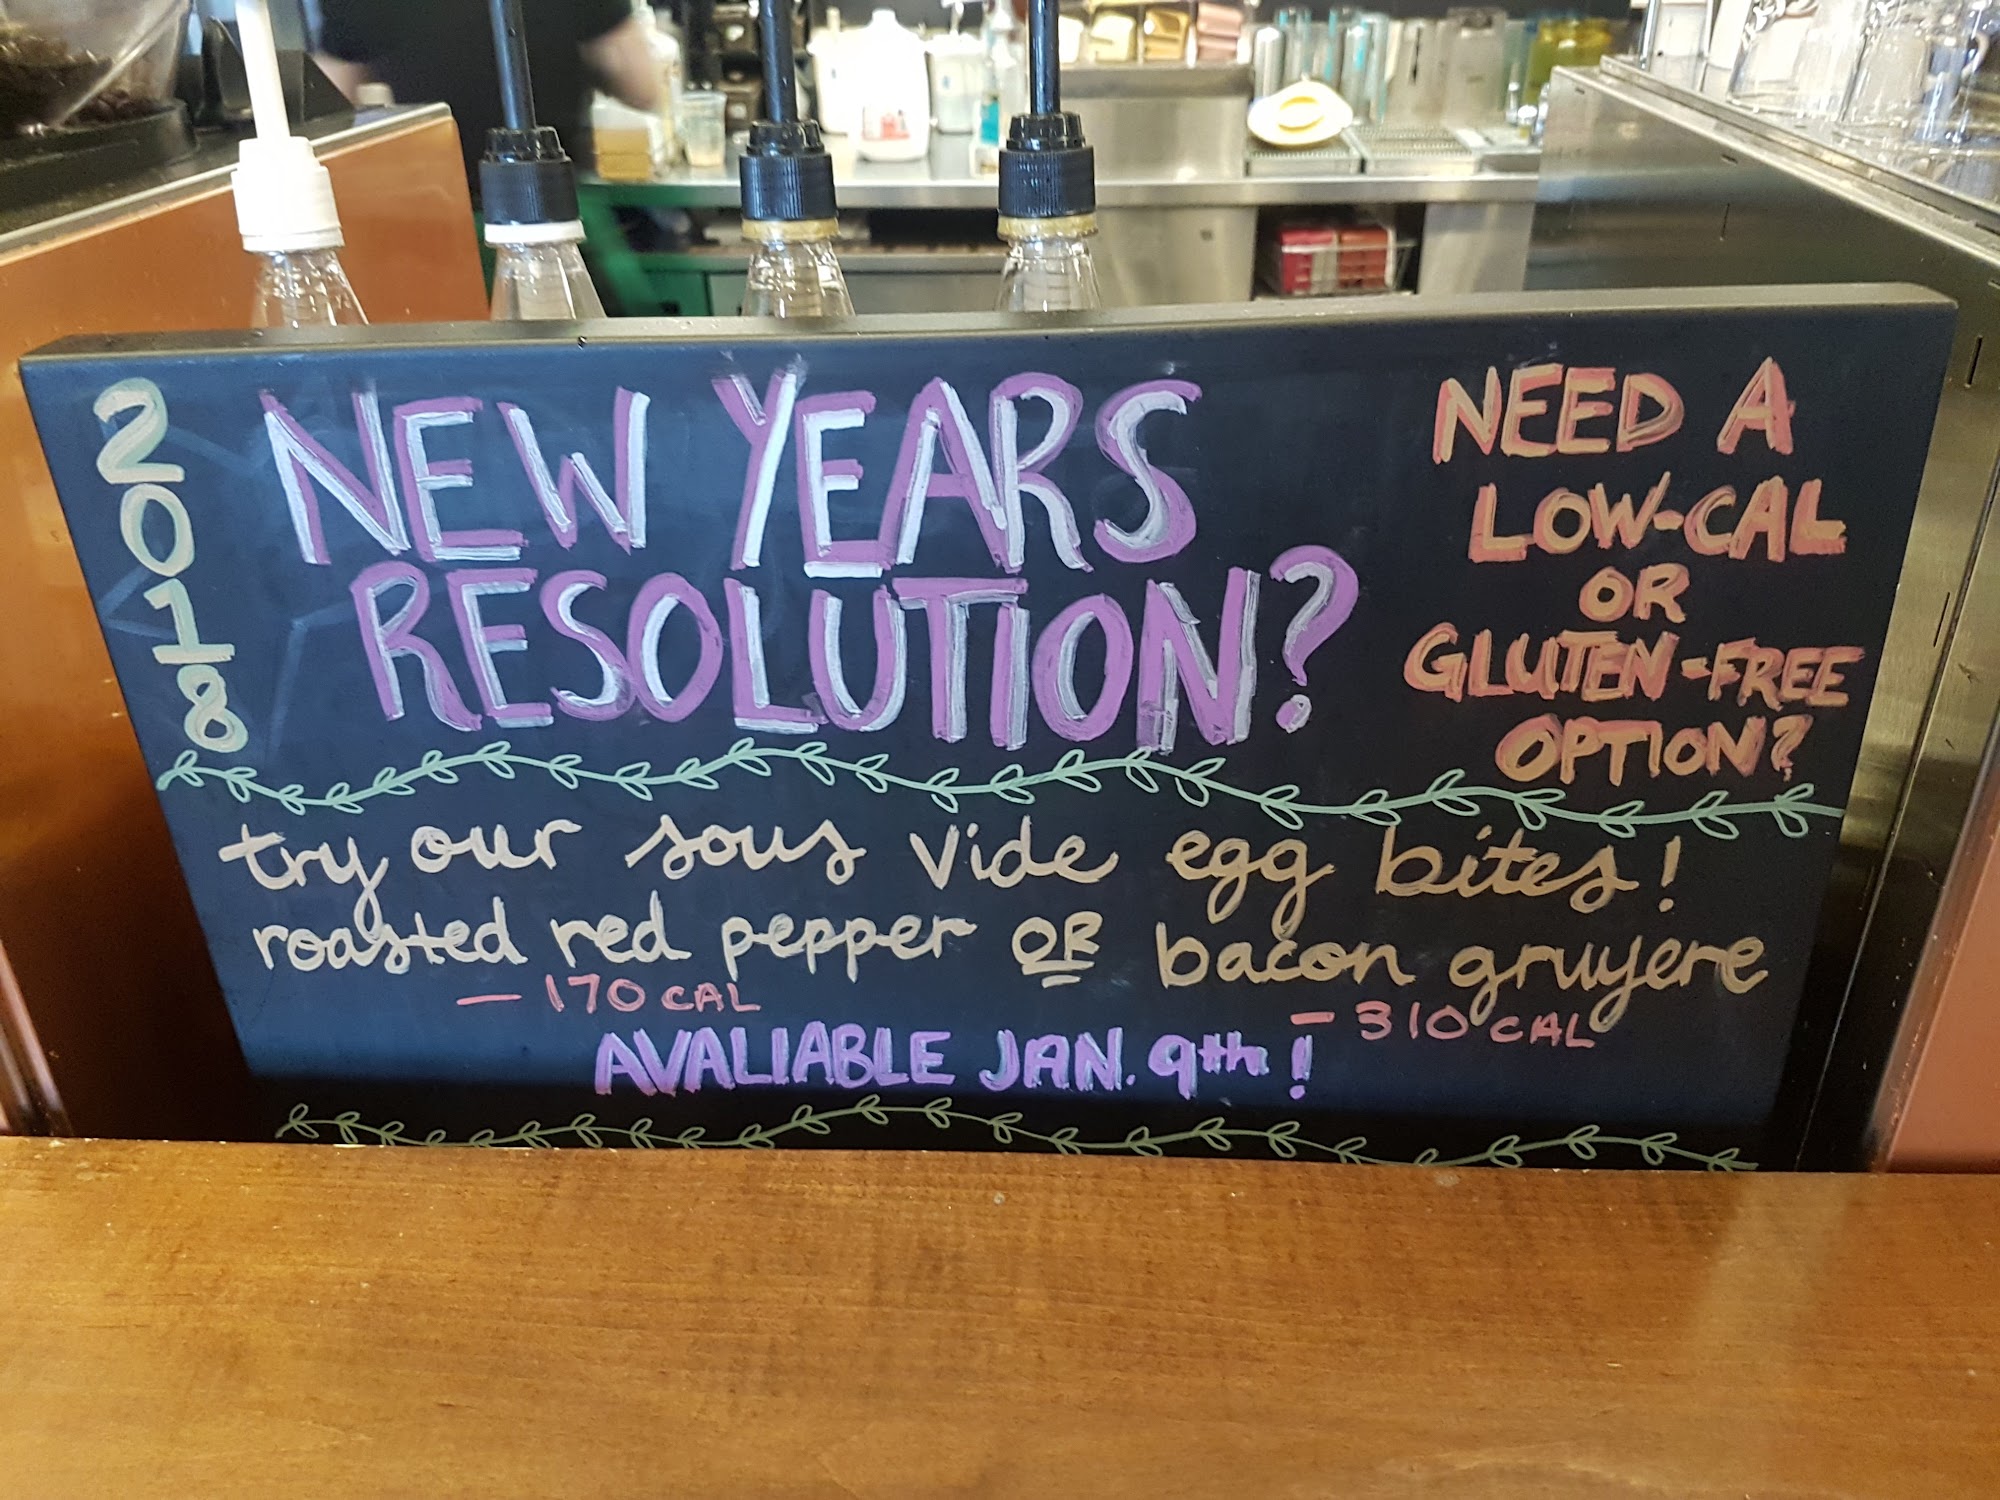 2018
NEW YEARS
RESOLUTION?
NEED A
LOW-CAL
OR
GLUTEN-FREE
OPTION?
try our sous vide egg bites!
roasted red pepper OR bacon gruyere
- 170 CAL
- 310 CAL
AVALIABLE JAN. 9th!